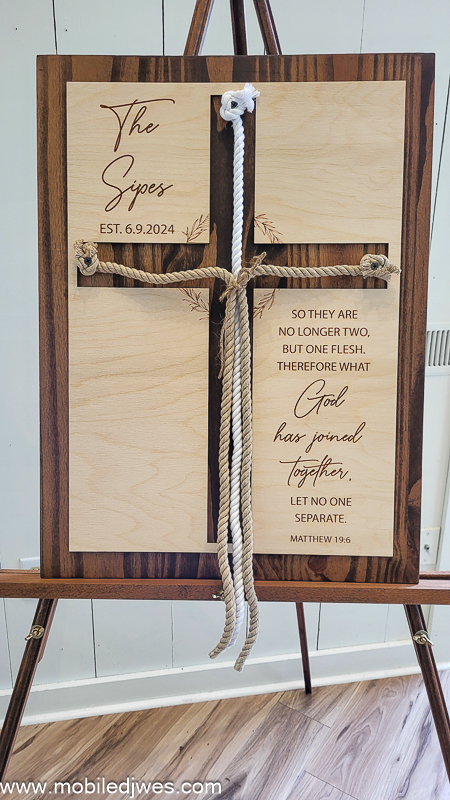 The
Sipes
EST. 6.9.2024
SO THEY ARE
NO LONGER TWO,
BUT ONE FLESH.
THEREFORE WHAT
God
has joined
together,
LET NO ONE
SEPARATE.
MATTHEW 19:6
www.mobiledjwes.com